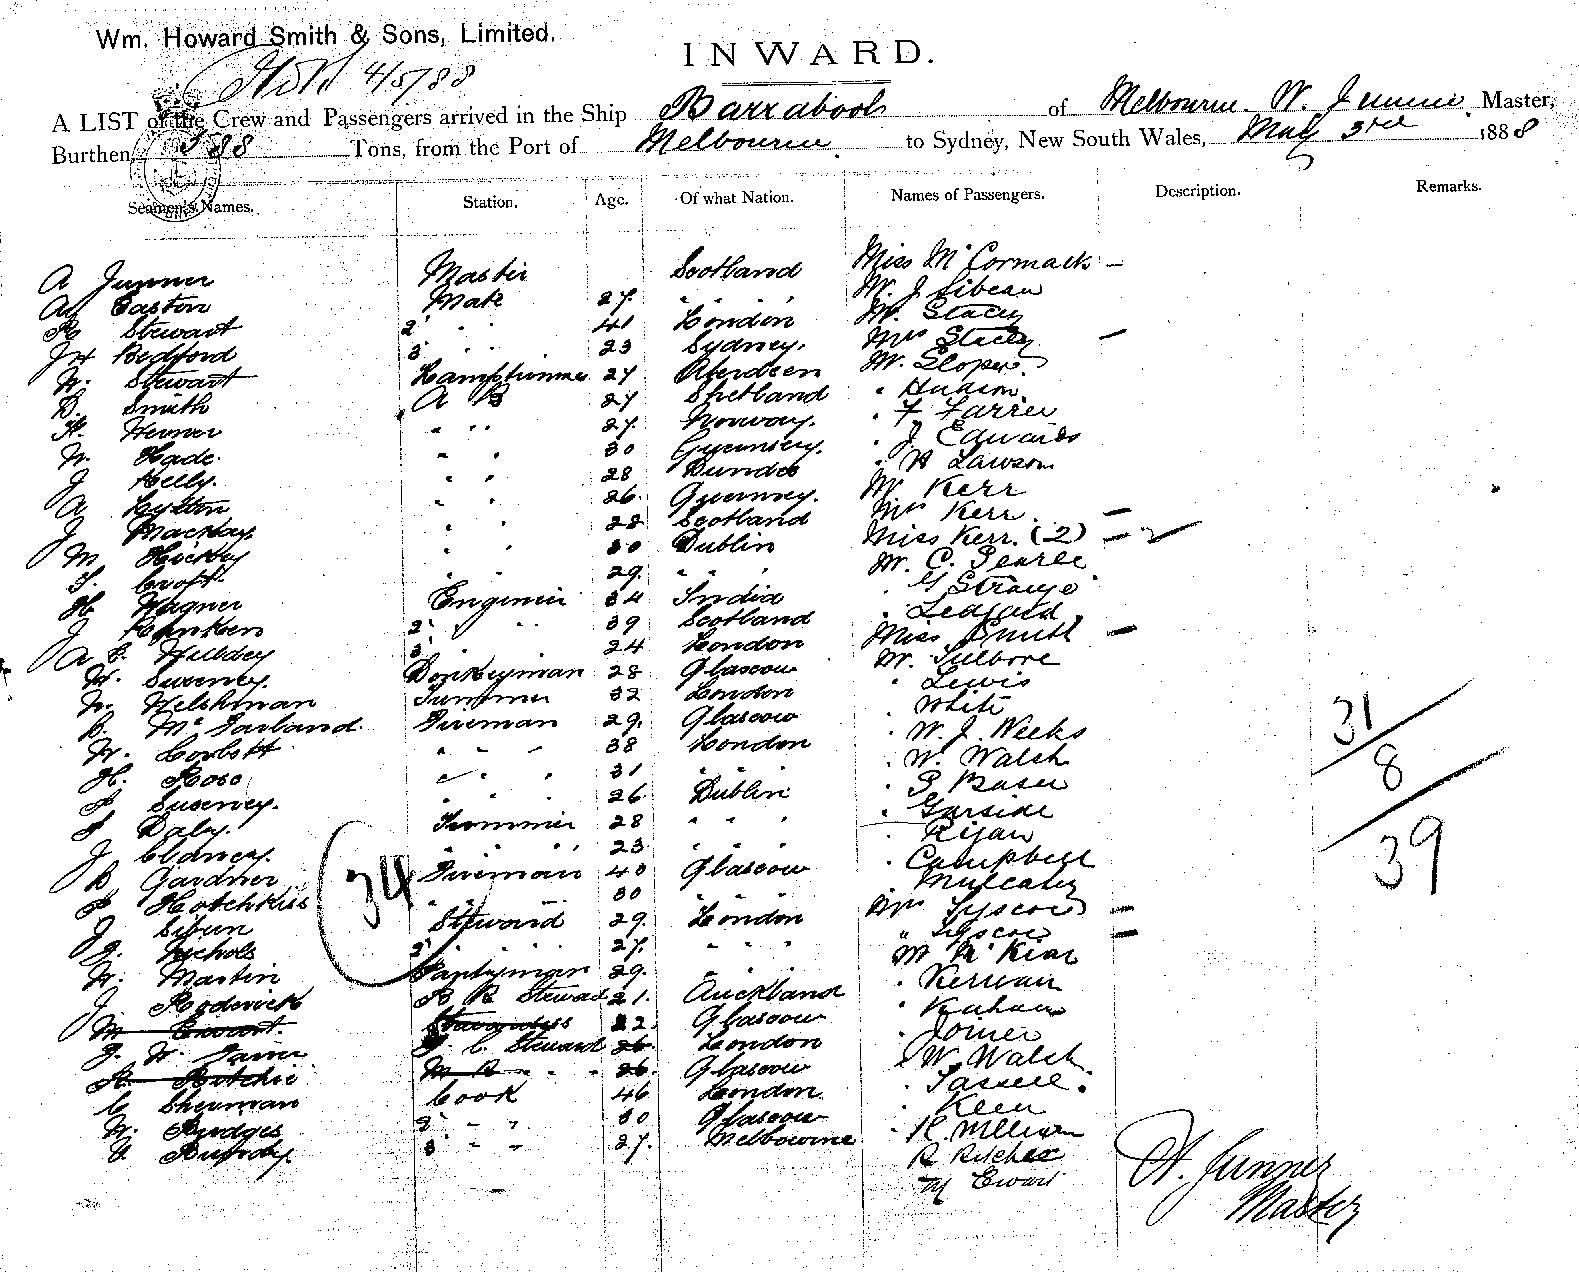 Wm. Howard Smith & Sons, Limited.
INWARD.
4/5/88
A LIST of the Crew and Passengers arrived in the Ship Barrabool of Melbourne. W. Junner Master,
Burthen, 388 Tons, from the Port of Melbourne to Sydney, New South Wales, May 3rd 1888
Seamen's Names. Station. Age. Of what Nation. Names of Passengers. Description. Remarks.
A Junner Master Scotland Miss McCormack –
A Easton Mate 27. " " " Mr. J Libeau
R Stewart 2 " " 41 London Mr. Stacey
JH Bedford 3 " " 23 Sydney. Mrs Stacey –
W. Stewart Lamptrimmer 27 Aberdeen Mr. Sloper
D. Smith A B 27 Shetland " Hudson
H. Henner " " 27. Norway. " F Farrer
W. Hade. " " 30 Guernsey. " J. Edwards
J Kelly. " " 28 Dundee " H Lawson
A Lylton " " 26. Guernsey. Mr Kerr
J Mackay " " 28 Scotland Mrs Kerr. –
M Hickey " " 30 Dublin Miss Kerr. (2) – 2
T. Croft. " " 29. " " " Mr. C. Searle
H. Wagner Engineer 34 India " G Strange
J Rankeen 2 " " 39 Scotland " Ledgard
A E. Hilldey 3 " 24 London Miss Smith –
W. Sweeney. Donkeyman 28 Glascow Mr.
W. Helshman Trimmer 32 London " Lewis
B. McFarland. Fireman 29. Glascow " White
W. Corbett " " " 38 London " W. J. Weeks
H. Rose " " " 31 " " . W. Walsh
P Sweeney. " " 26 Dublin " P Baser
P Daly. Trimmer 28 " " " " Garside
J Clancy. " " " 23 " " " Ryan
B Gardner Fireman 40 Glascow " Campbell
P Hotchkiss " " " 30 " " " Mulcahy
J Sibun Steward 29. London Mrs Lyscoe –
G. Nichols 2 " " " 27. " " " " Lyscoe –
W. Martin Pantryman 29. " " Mr McKim
J Roderick B R Steward 21. Auckland " Kerwan
M Ewart. Stewardess 22. Glascow
J. W. S. C. Steward 26 London " Joiner
R. Ritchie M R " " 26. Glascow " W. Walsh
C Sherman Cook 46 London.
W. Bridges 2 " " 30 Glascow " Keen
A Bundy. 3 " " 27. Melbourne
R Ritchie
M Ewart
34
31
8
39
A. Junner
Master